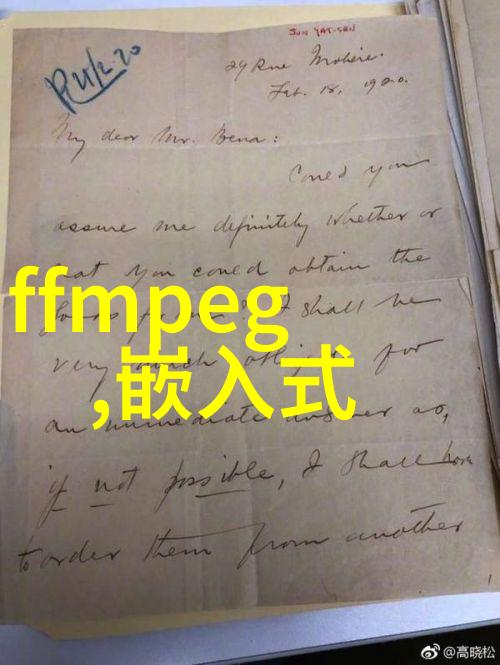 SUN YAT-SEN
R 21/2-20
29 Rue Molière.
Feb. 18, 1920.
My dear Mr. Bena:
Could you
assure me definitely whether or
not you could obtain the
ffmpeg
,嵌入式
I shall be
very much for
an immediate answer as,
if not possible, I shall have
to order them from another
@高晓松